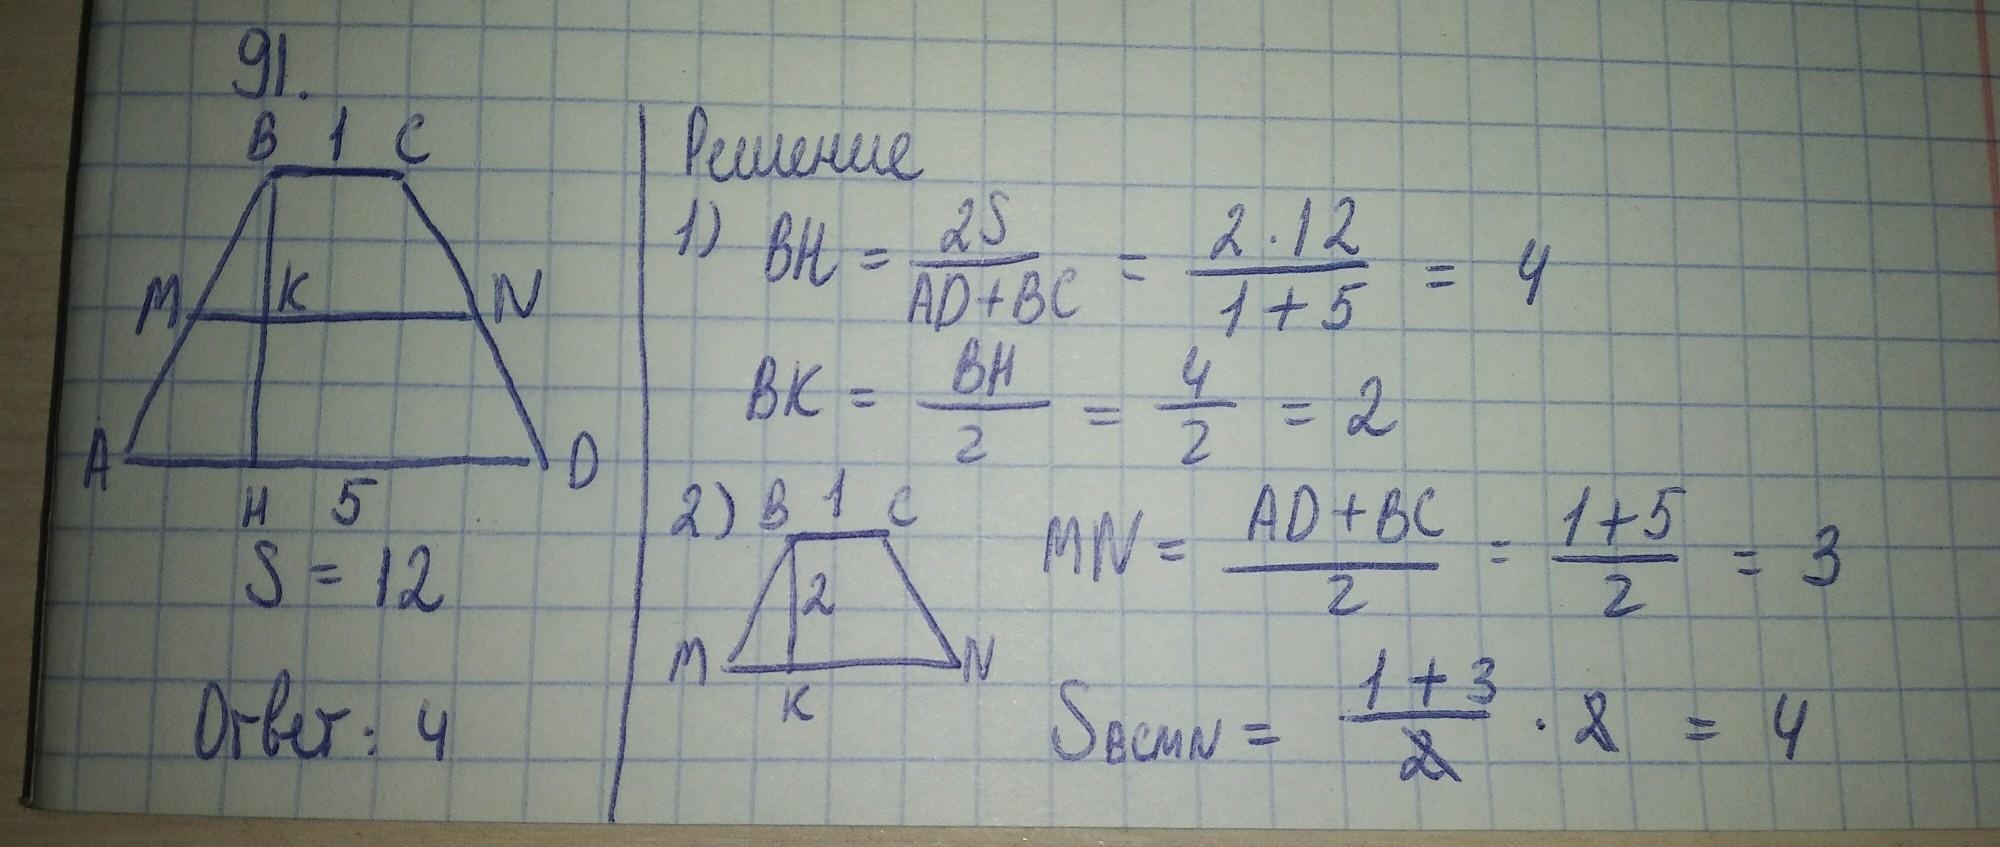 91.
B 1 C
M K N
A D
H 5
S = 12
Ответ: 4
Решение
1) BH = 2S / AD+BC = 2·12 / 1+5 = 4
BK = BH / 2 = 4 / 2 = 2
2) B 1 C
2
M N
K
MN = AD+BC / 2 = 1+5 / 2 = 3
SBCMN = 1+3 / 2 · 2 = 4